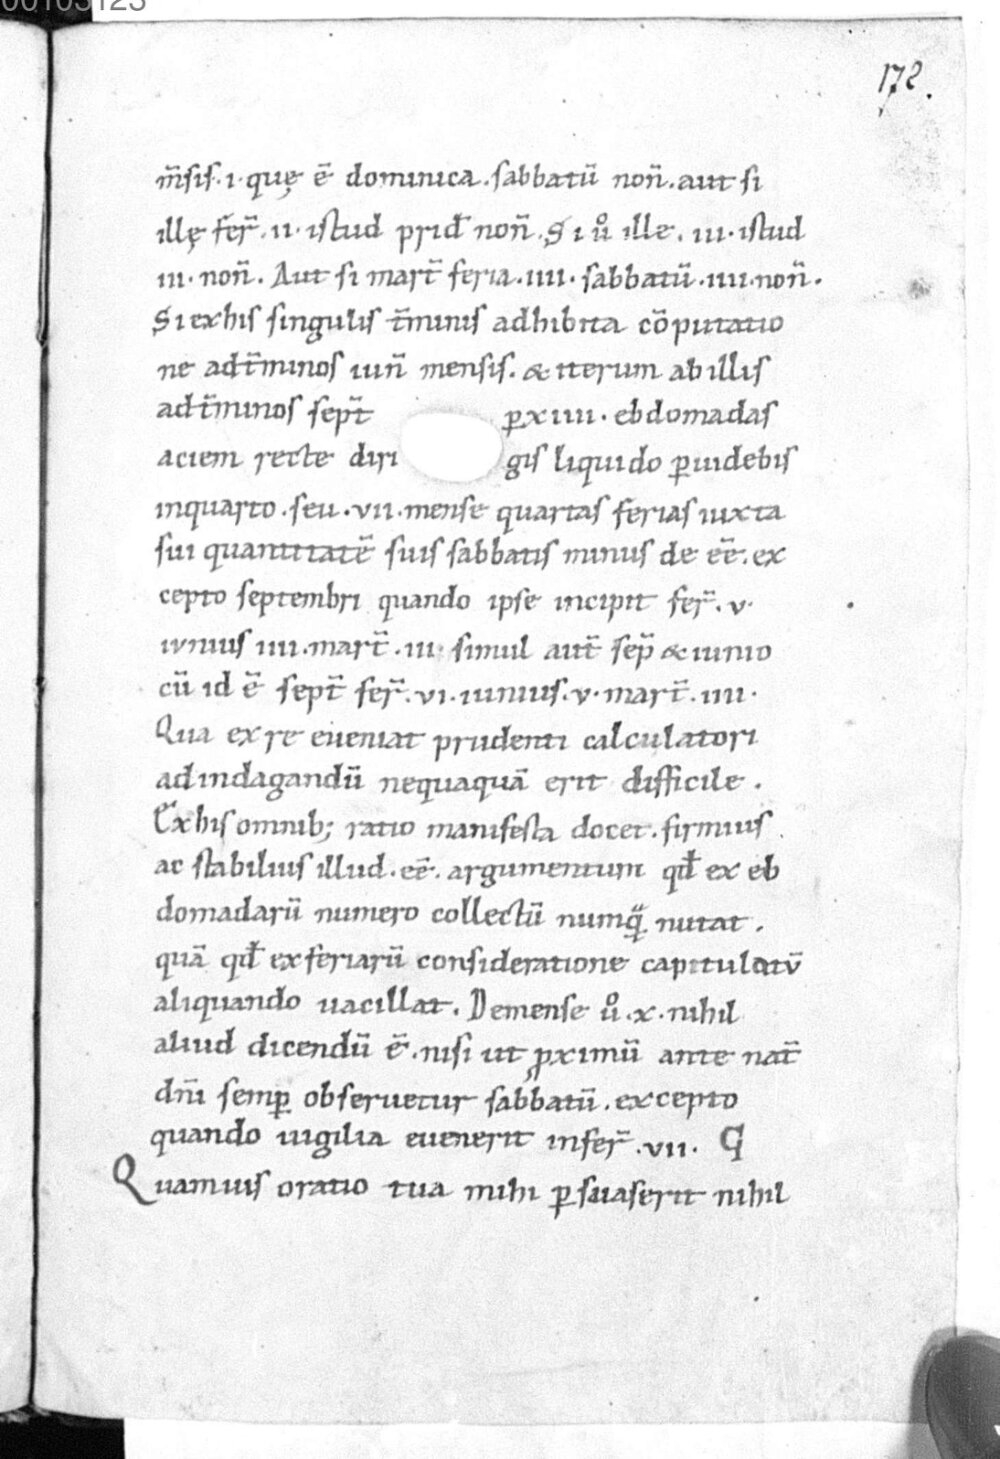 00103123
172.
m̄sis·i·quę ē dominica.sabbatū non̄.aut si
illę fer̄.ii·istud prid̄ non̄.Si ů ille.iii·istud
iii·non̄.Aut si mart̄ feria.iiii·sabbatū.iiii.non̄.
Si exhis singulis t̄minis adhibita cōputatio
ne adt̄minos iun̄ mensis.& iterum ab illis
adt̄minos sept̄ ꝑxiiii·ebdomadas
aciem recte diri gis liquido ꝑuidebis
inquarto.seu.vii.mense quartas ferias iuxta
sui quantitatē suis sabbatis minus de eē.ex
cepto septembri quando ipse incipit fer̄.v·
iunius iiii.mart̄.iii· simul aut̄ sep̄ & iunio
cū id ē sept̄ fer̄.vi.iunius.v·mart̄.iiii·
Qua ex re eueniat prudenti calculatori
adindagandū nequaquā erit difficile.
Exhis omnib; ratio manifesta docet.firmius
ac stabilius illud.eē.argumentum qd̄ ex eb
domadarū numero collectū numq̄ nutat.
quā qd̄ exferiarū consideratione capitulatū
aliquando uacillat.Demense ů.x.nihil
aliud dicendū ē.nisi ut ꝓximū ante nat̄
dn̄i semꝑ obseruetur sabbatū.excepto
quando uigilia euenerit infer̄.vii.
Quamuis oratio tua mihi ꝑsuaserit nihil